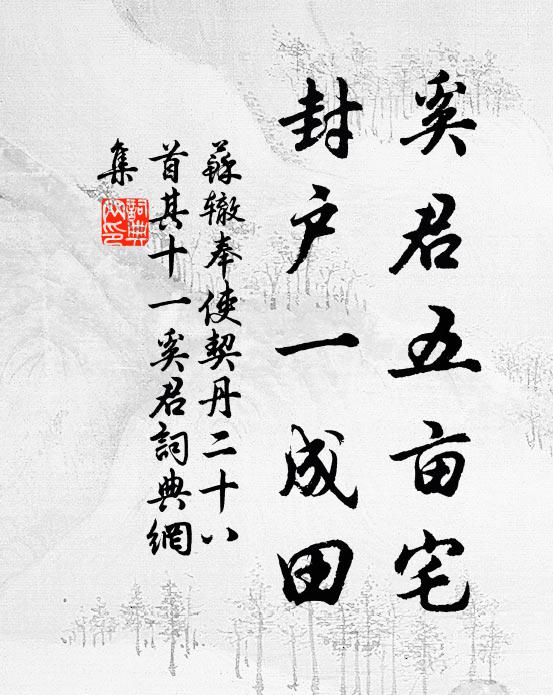 奚君五亩宅
封户一成田
蘇辙奉使契丹二十八
首其十一奚君詞典網
集
詞典網印